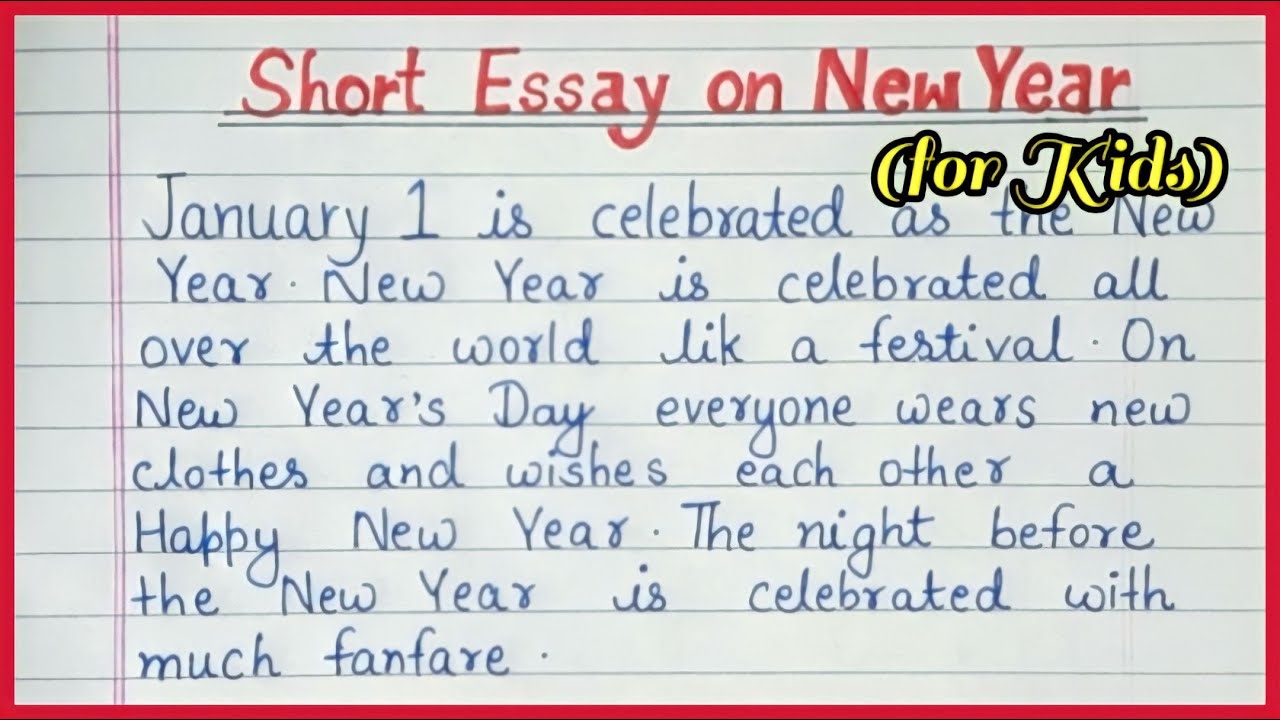 Short Essay on New Year
(for Kids)
January 1 is celebrated as the New
Year. New Year is celebrated all
over the world lik a festival. On
New Year's Day everyone wears new
clothes and wishes each other a
Happy New Year. The night before
the New Year is celebrated with
much fanfare.